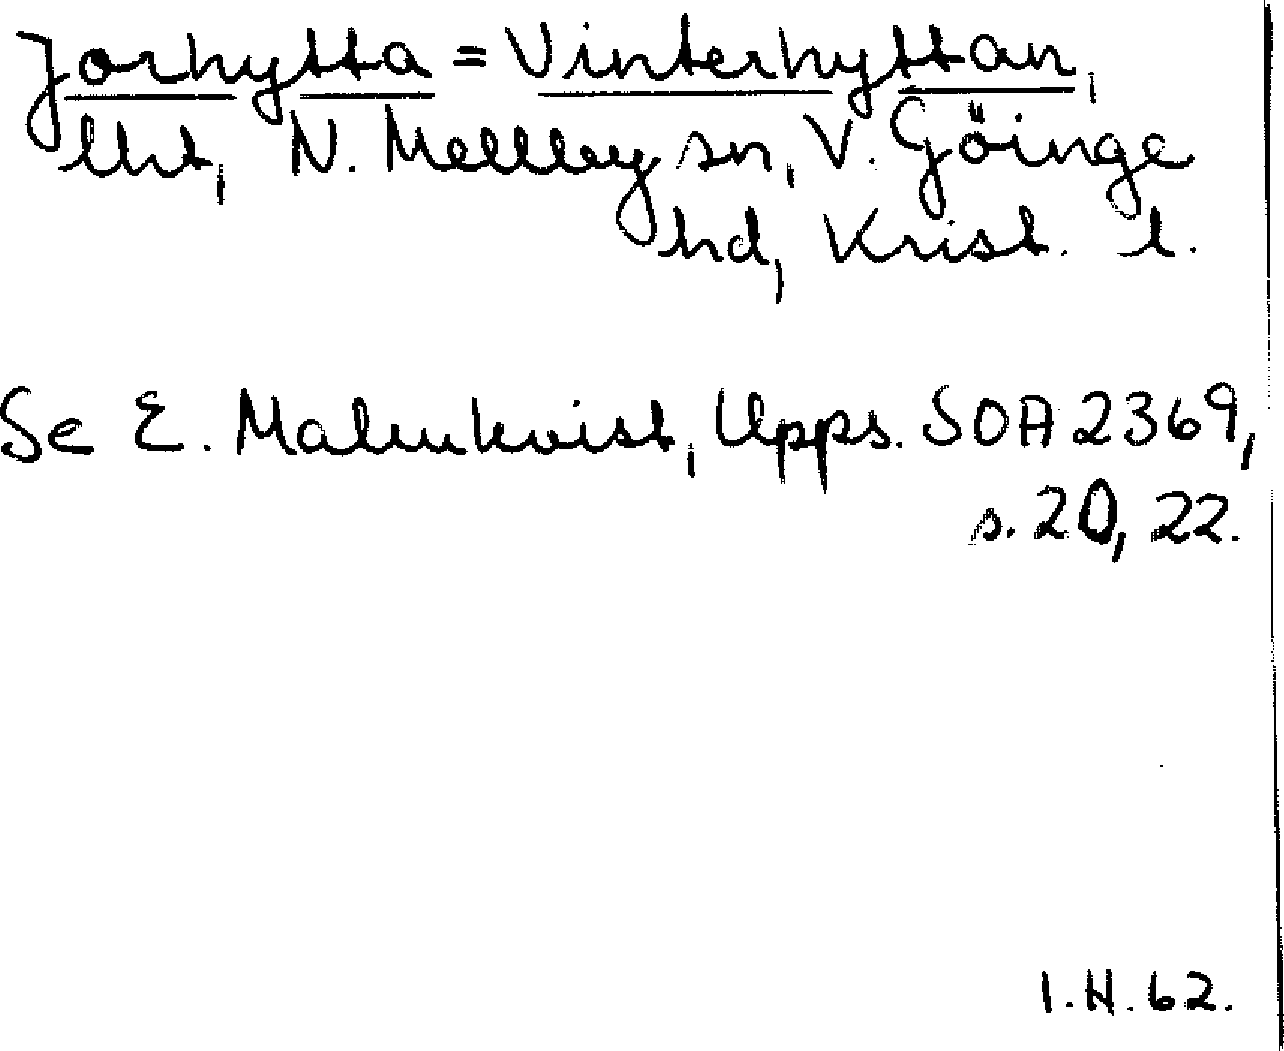 Jorhytta = Vinterhyttan,
lht, N. Mellby sn, V. Göinge
hd, Krist. l.
Se E. Malmkvist, Upps. SOA 2369,
s. 20, 22.
I.H. 62.